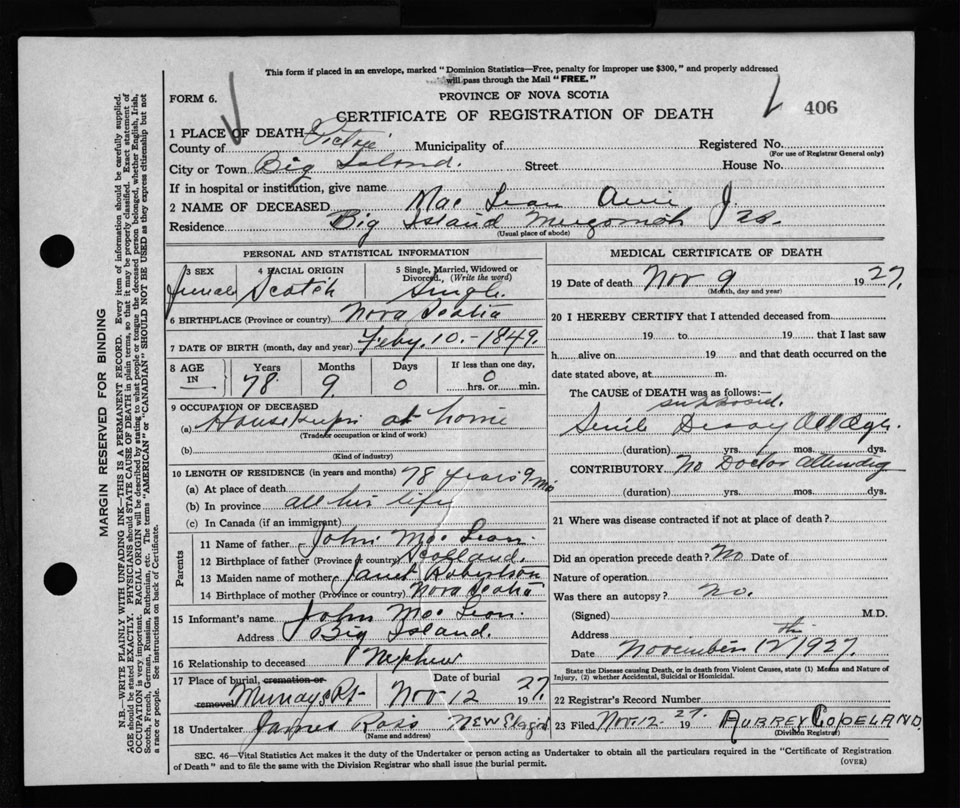 This form if placed in an envelope, marked "Dominion Statistics—Free, penalty for improper use $300," and properly addressed
will pass through the Mail "FREE."
FORM 6.
PROVINCE OF NOVA SCOTIA
CERTIFICATE OF REGISTRATION OF DEATH
406
1 PLACE OF DEATH
County of Pictou Municipality of Registered No.
(For use of Registrar General only)
City or Town Big Island. Street House No.
If in hospital or institution, give name
2 NAME OF DECEASED Mac Lean Annie J.
Residence Big Island Merigomish N.S.
(Usual place of abode)
PERSONAL AND STATISTICAL INFORMATION
3 SEX 4 RACIAL ORIGIN 5 Single, Married, Widowed or Divorced, (Write the word)
Female Scotch Single
6 BIRTHPLACE (Province or country) Nova Scotia
7 DATE OF BIRTH (month, day and year) Feby. 10.-1849.
8 AGE IN Years Months Days If less than one day,
78 9 0 0 hrs. or min.
9 OCCUPATION OF DECEASED
(a) Housekeeper at home
(Trade, occupation or kind of work)
(b)
(Kind of industry)
10 LENGTH OF RESIDENCE (in years and months) 78 years 9 Mo
(a) At place of death
(b) In province all his life
(c) In Canada (if an immigrant)
Parents
11 Name of father John Mac Lean.
12 Birthplace of father (Province or country) Scotland.
13 Maiden name of mother Janet Robertson
14 Birthplace of mother (Province or country) Nova Scotia
15 Informant's name John Mac Lean.
Address Big Island.
16 Relationship to deceased Nephew
17 Place of burial, cremation or removal Date of burial
Murrays Pt Nov 12 1927.
18 Undertaker James Ross New Glasgow
(Name and address)
MEDICAL CERTIFICATE OF DEATH
19 Date of death Nov 9 1927.
(Month, day and year)
20 I HEREBY CERTIFY that I attended deceased from
19 to 19 that I last saw
h alive on 19 and that death occurred on the
date stated above, at m.
The CAUSE of DEATH was as follows:—
supposed.
Senile Decay Old Age.
(duration) yrs. mos. dys.
CONTRIBUTORY No Doctor Attending
(duration) yrs. mos. dys.
21 Where was disease contracted if not at place of death?
Did an operation precede death? No Date of
Nature of operation
Was there an autopsy? no.
(Signed) M.D.
Address
Date November 12th 1927.
State the Disease causing Death, or in death from Violent Causes, state (1) Means and Nature of
Injury, (2) whether Accidental, Suicidal or Homicidal.
22 Registrar's Record Number
23 Filed Nov. 12. 1927. AUBREY COPELAND
(Division Registrar)
SEC. 46—Vital Statistics Act makes it the duty of the Undertaker or person acting as Undertaker to obtain all the particulars required in the "Certificate of Registration
of Death" and to file the same with the Division Registrar who shall issue the burial permit.
(OVER)
MARGIN RESERVED FOR BINDING
N.B.—WRITE PLAINLY WITH UNFADING INK—THIS IS A PERMANENT RECORD. Every item of information should be carefully supplied.
AGE should be stated EXACTLY. PHYSICIANS should STATE CAUSE OF DEATH in plain terms, so that it may be properly classified. Exact statement of
OCCUPATION is very important. RACIAL ORIGIN will be described by stating to what people or tongue the deceased person belonged, whether English, Irish,
Scotch, French, German, Russian, Ruthenian, etc. The terms "AMERICAN" or "CANADIAN" SHOULD NOT BE USED as they express citizenship but not
a race or people. See instructions on back of Certificate.